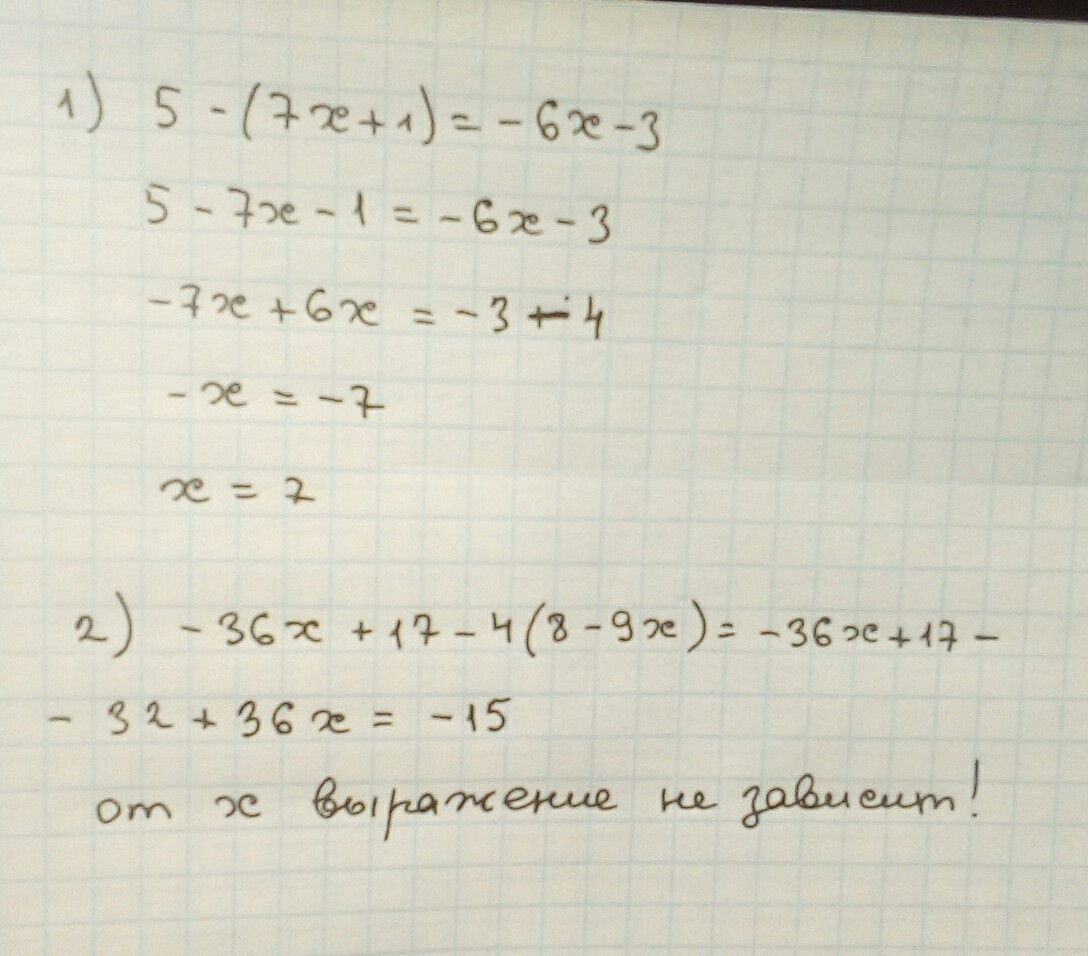 1) 5 - (7x + 1) = - 6x - 3
5 - 7x - 1 = - 6x - 3
- 7x + 6x = - 3 - 4
- x = - 7
x = 7
2) - 36x + 17 - 4(8 - 9x) = - 36x + 17 -
- 32 + 36x = - 15
от x выражение не зависит!